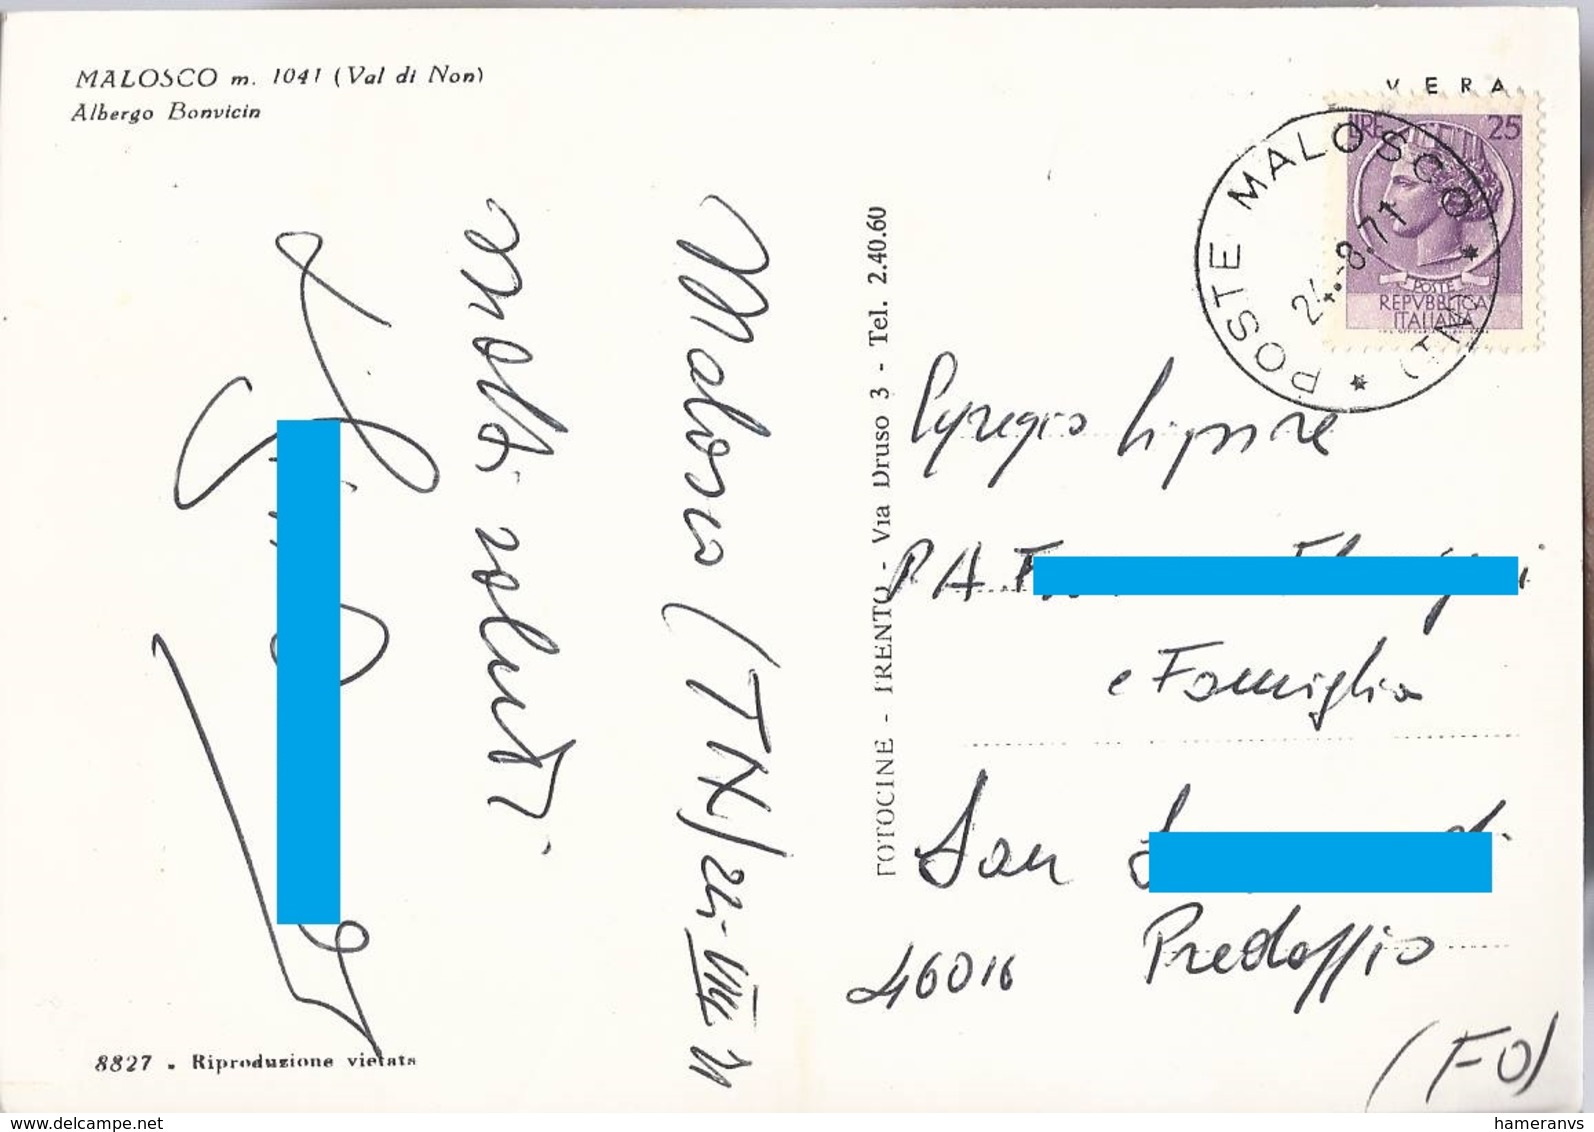 MALOSCO m. 1041 (Val di Non)
Albergo Bonvicin
VERA
LIRE 25
POSTE
REPVBBLICA
ITALIANA
POSTE MALOSCO (TN)
24.-8.71
Malosco (TN) 24-VIII 71
Molti saluti
FOTOCINE - TRENTO - Via Druso 3 - Tel. 2.40.60
Egregio Signore
P.A. F
e Famiglia
San
46016 Predappio
(FO)
8827 - Riproduzione vietata
www.delcampe.net
hameranvs